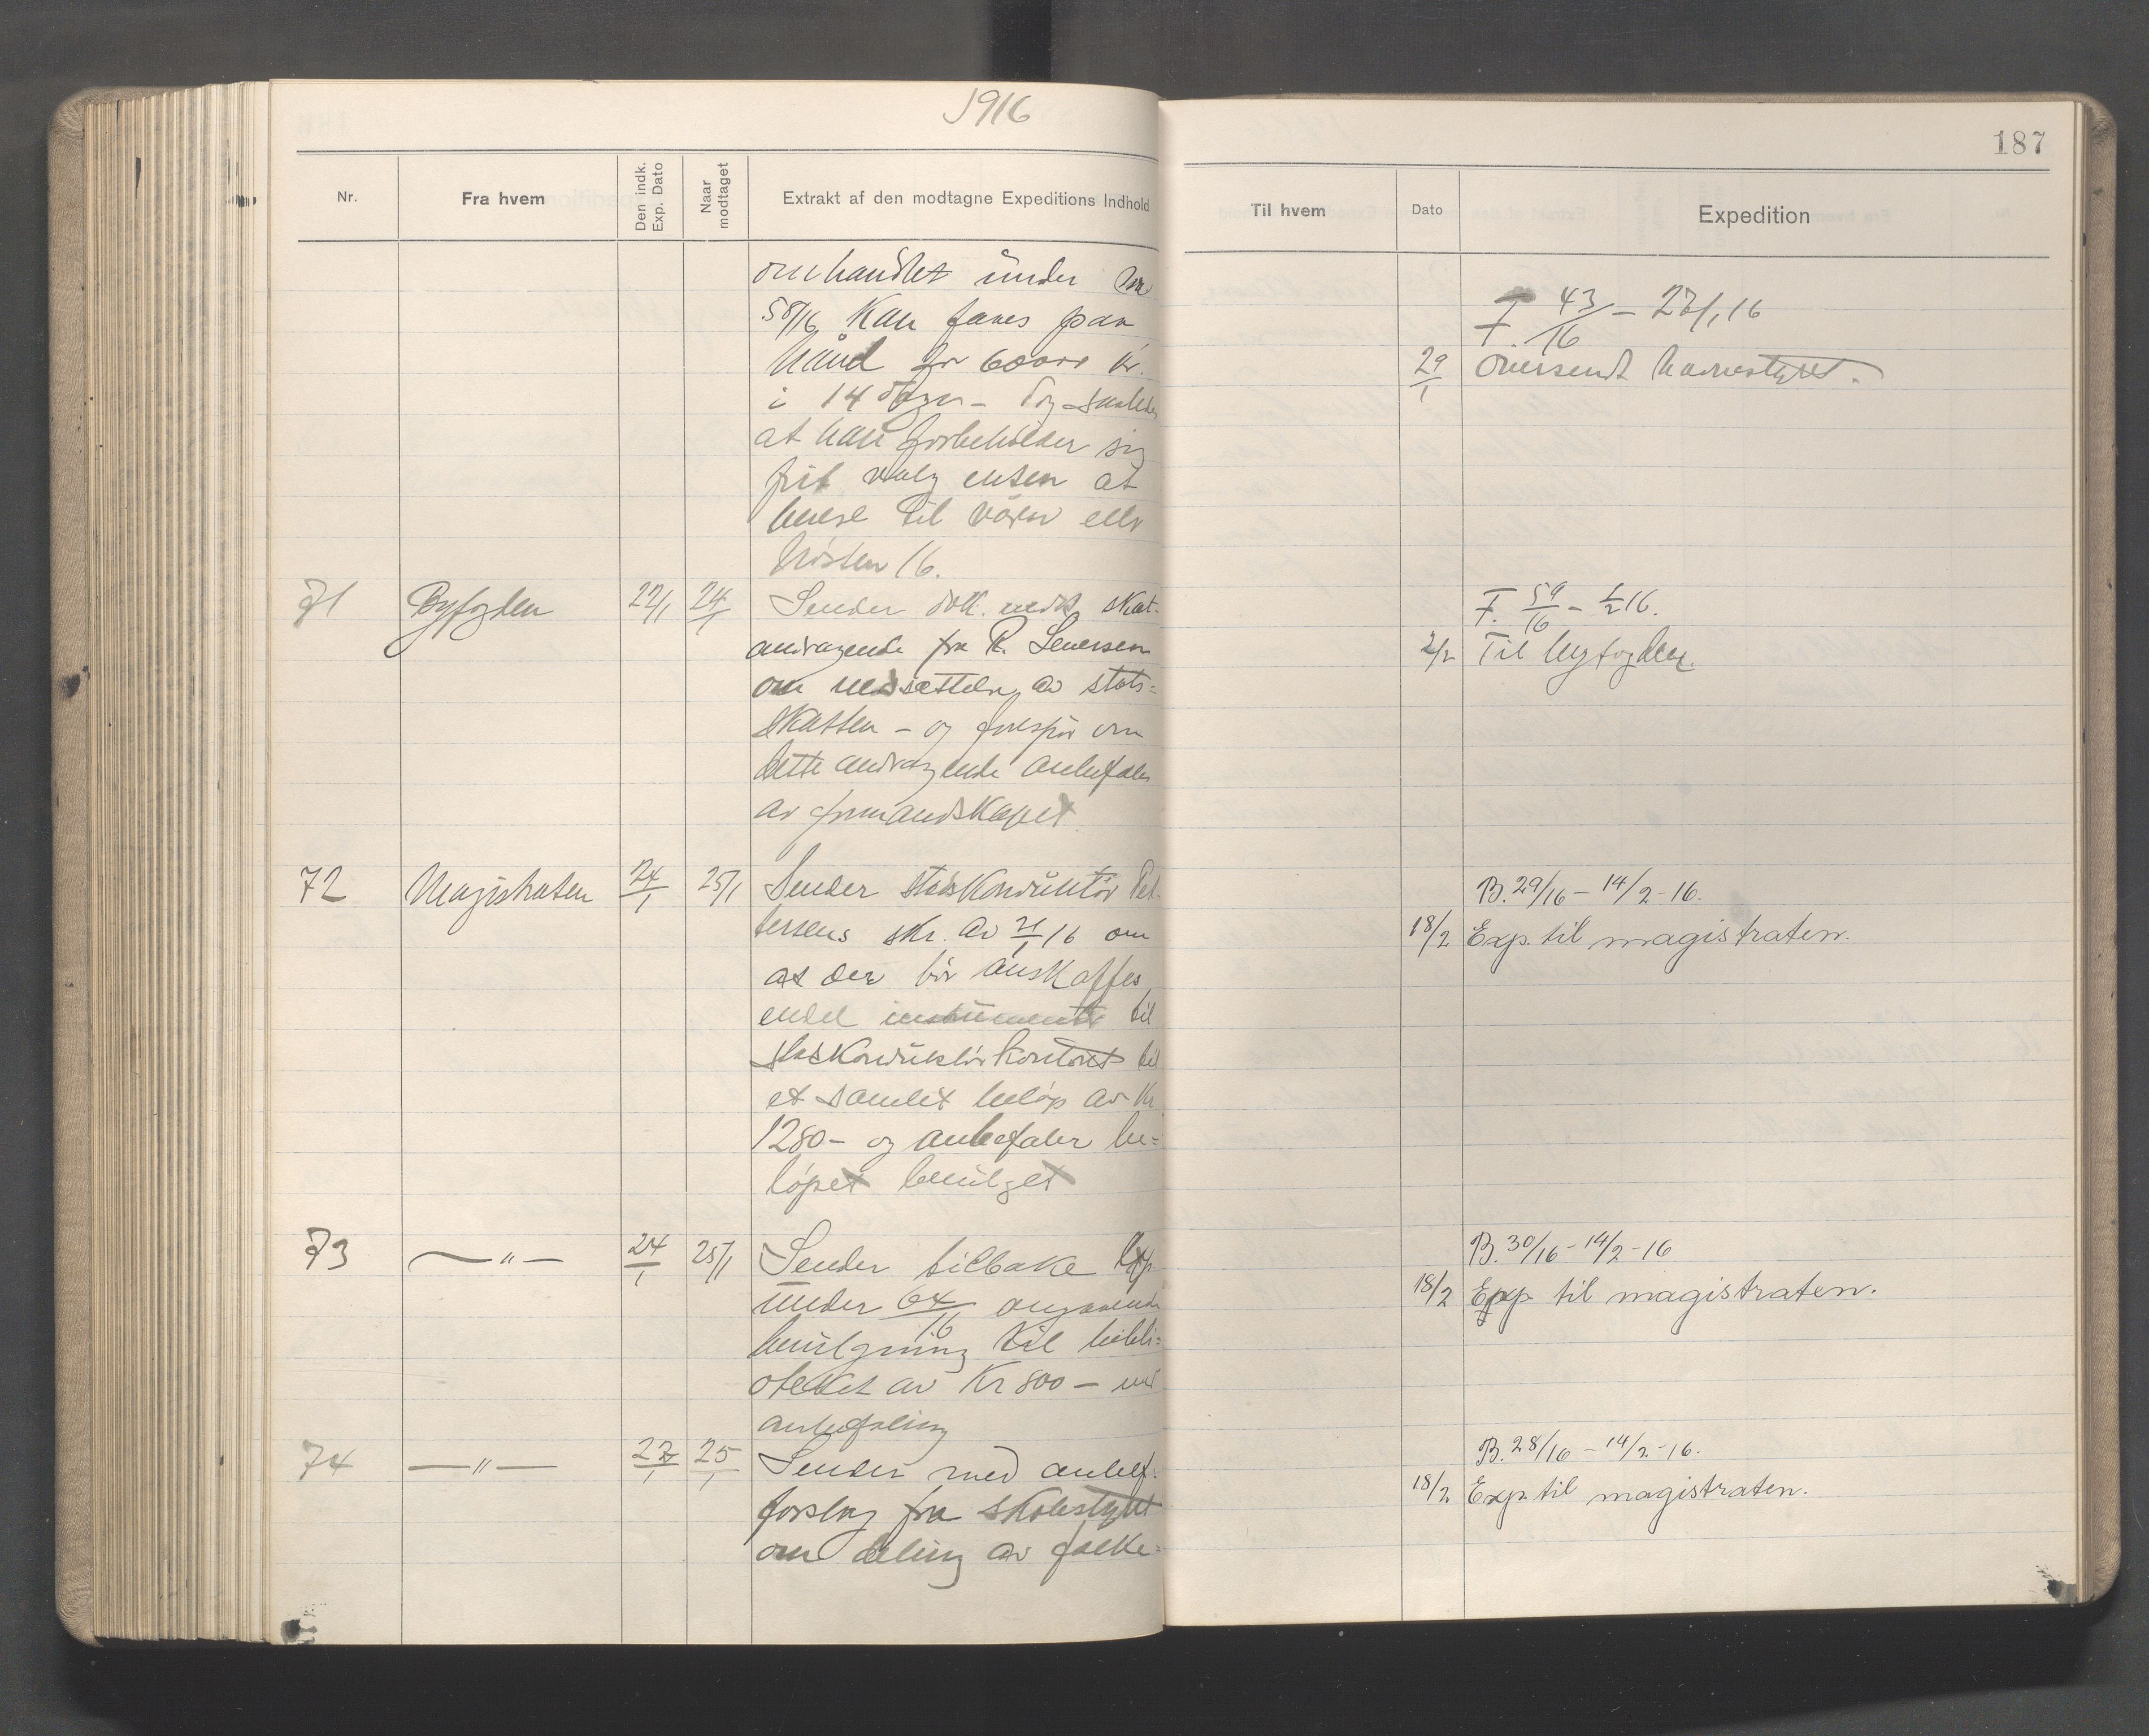 1916
187
Nr.
Fra hvem
Den indk. Exp. Dato
Naar modtaget
Extrakt af den modtagne Expeditions Indhold
Til hvem
Dato
Expedition
omhandlet under
58/16 Kan faaes paa
hånd for 60000 kr.
i 14 - og saaledes
at han forbeholder sig
frit valg enten at
til våren eller
høsten 16.
F. 43/16 - 27/1 16
29/1 oversendt havnestyret.
71 Byfogden 22/1 24/1 Sender dok. vedk. skat-
andragende fra R. Severssen
om nedsættelse av stats=
skatten - og forespør om
dette andragende anbefales
av formandskapet
F. 59/16 - 1/2 16.
2/2 Til byfogden.
72 Magistraten 24/1 25/1 Sender stadskonduktør Pet-
tersens skr. av 21/1 16 om
at der bör anskaffes
endel instrumenter til
stadskonduktörkontoret til
et samlet beløp av Kr
1280- og anbefaler be=
løpet bevilget
B. 29/16 - 14/2 - 16.
18/2 Exp. til magistraten.
73 — " — 24/1 25/1 Sender tilbake Exp
under 64/16 angaaende
bevilgning til bibli=
oteket av Kr 800 - med
anbefaling
B. 30/16 - 14/2 - 16
18/2 Exp. til magistraten.
74 — " — 22/1 25/1 Sender med anbef.
forslag fra skolestyret
om deling av folke=
B. 28/16 - 14/2 - 16.
18/2 Exp. til magistraten.